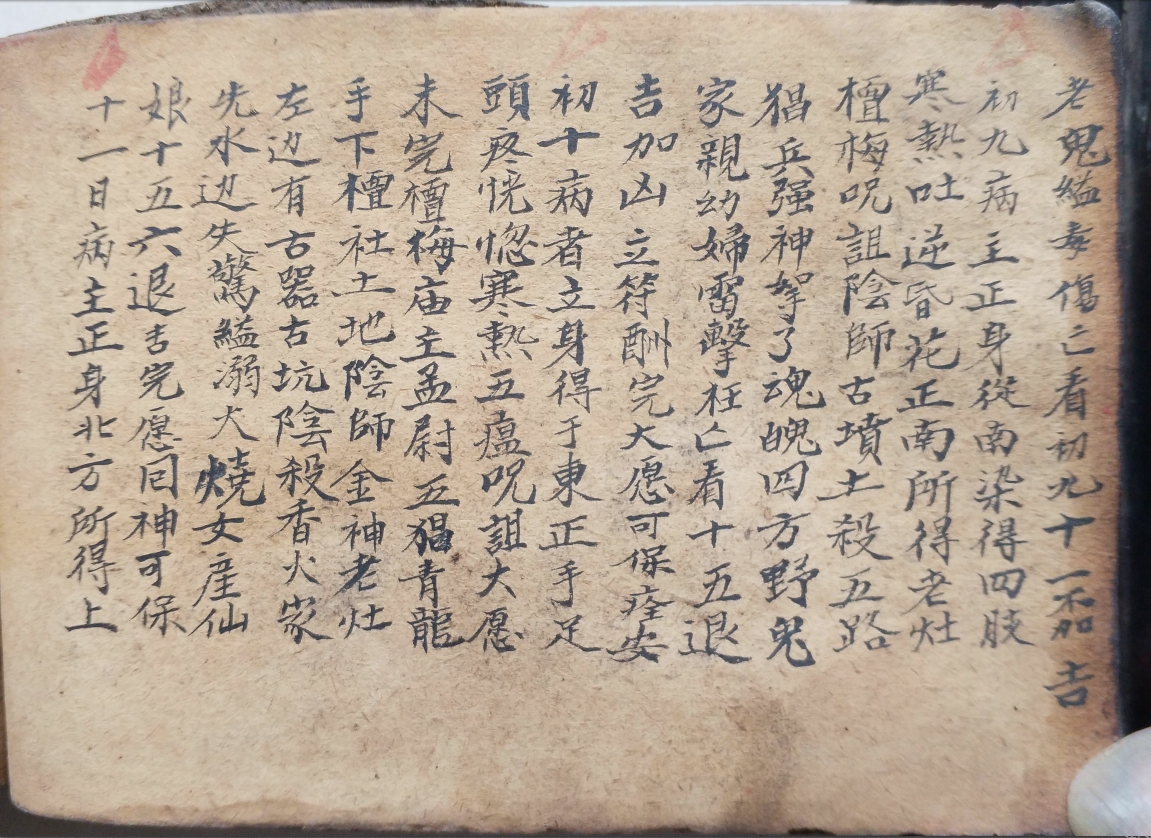 老鬼縊毒傷亡看初九十一不加吉
初九病主正身從南染得四肢
寒熱吐逆昏花正南所得老灶
檀梅呪詛陰師古墳土殺五路
猖兵强神拏了魂魄四方野鬼
家親幼婦雷擊枉亡看十五退
吉加凶立符酬完大愿可保痊安
初十病者立身得于東正手足
頭疼恍惚寒熱五瘟呪詛大愿
未完檀梅庙主孟尉五猖青龍
手下檀社土地陰師金神老灶
左边有古器古坑陰殺香火家
先水边失驚縊溺火燒女産仙
娘十五六退吉完愿回神可保
十一日病主正身北方所得上